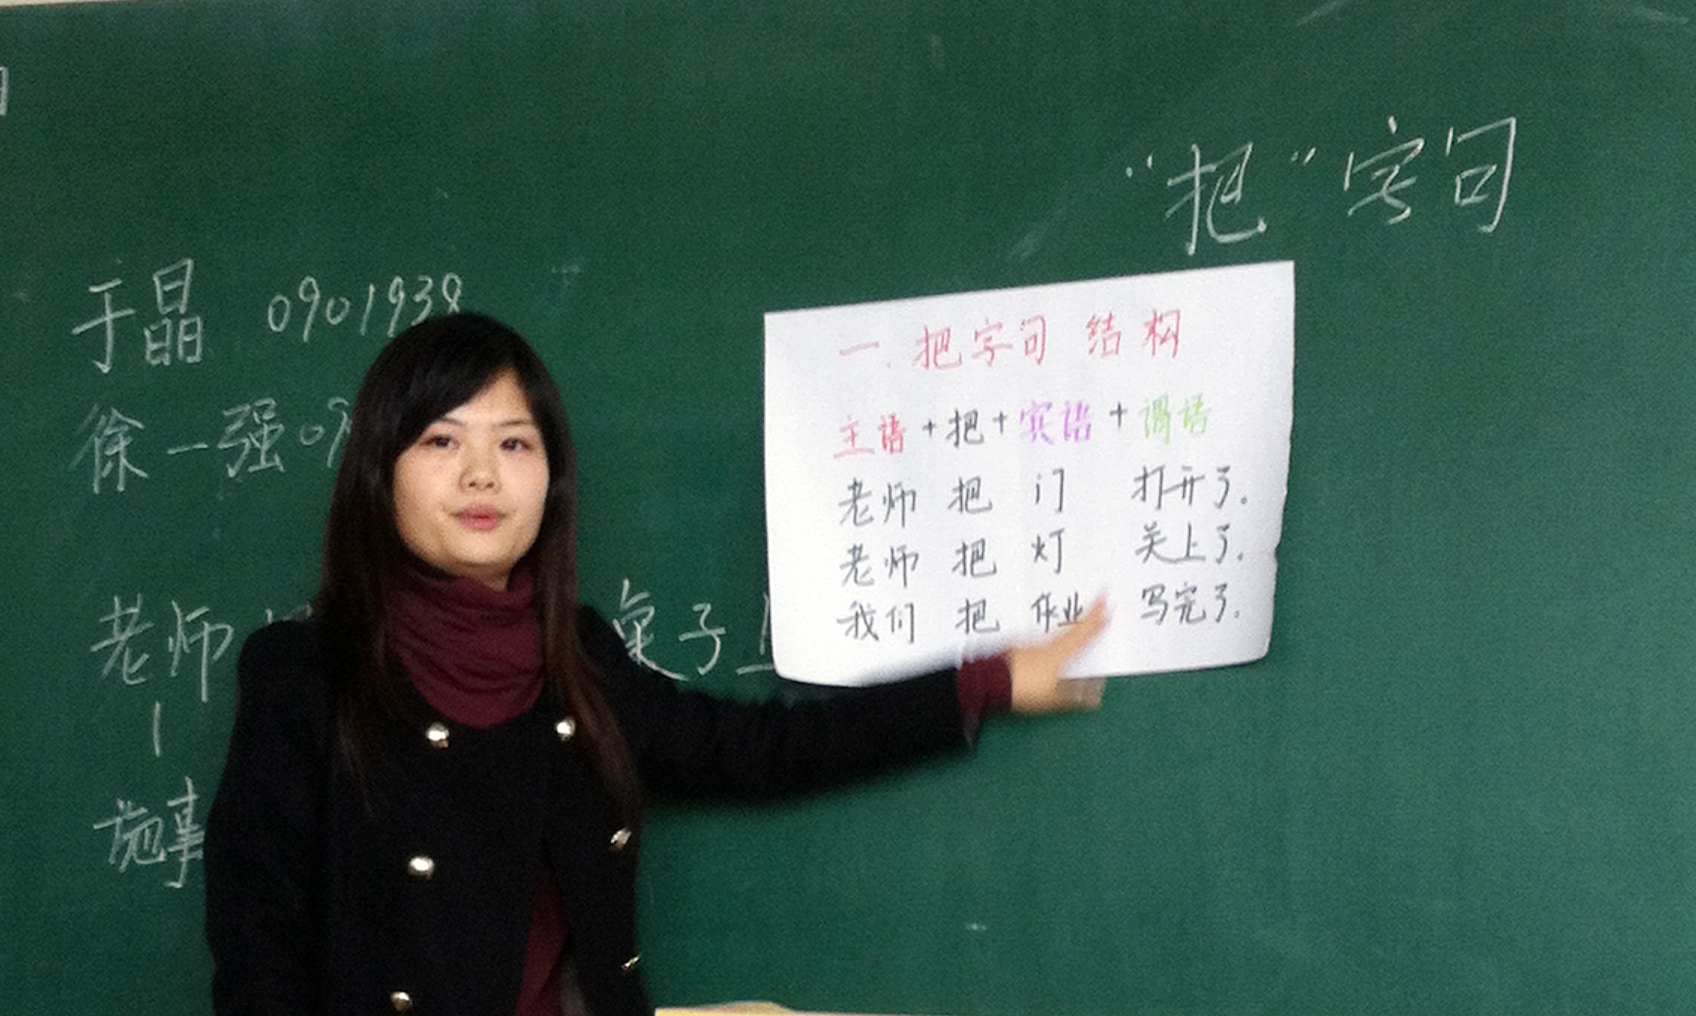 “把”字句
于晶 0901938
徐一强09
老师
桌子上
施事
一.把字句 结构
主语+把+宾语+谓语
老师 把 门 打开了。
老师 把 灯 关上了.
我们 把 作业 写完了.